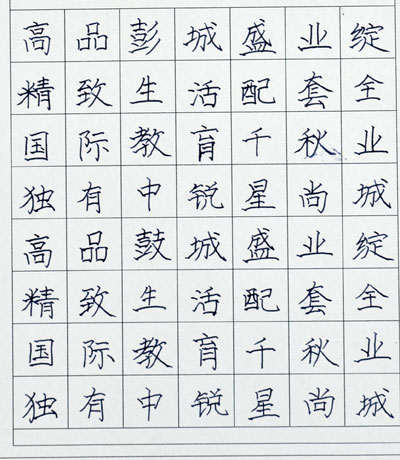 高品彭城盛业绽
精致生活配套全
国际教育千秋业
独有中锐星尚城
高品鼓城盛业绽
精致生活配套全
国际教育千秋业
独有中锐星尚城